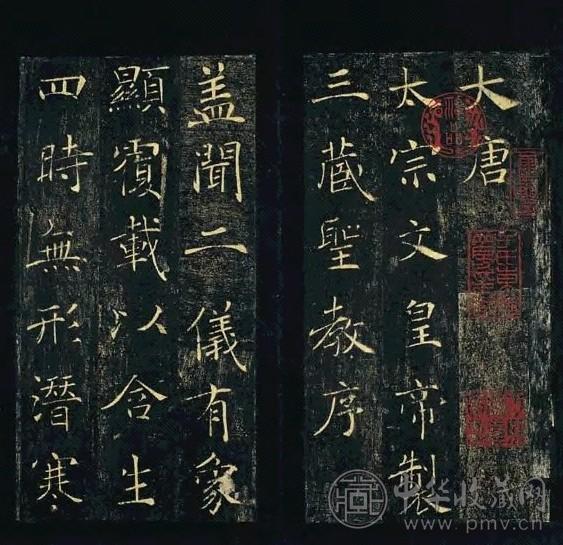 大唐
太宗文皇帝製
三藏聖教序
盖聞二儀有象
顯覆載以含生
四時無形潛寒
中华收藏网
www.pmv.cn